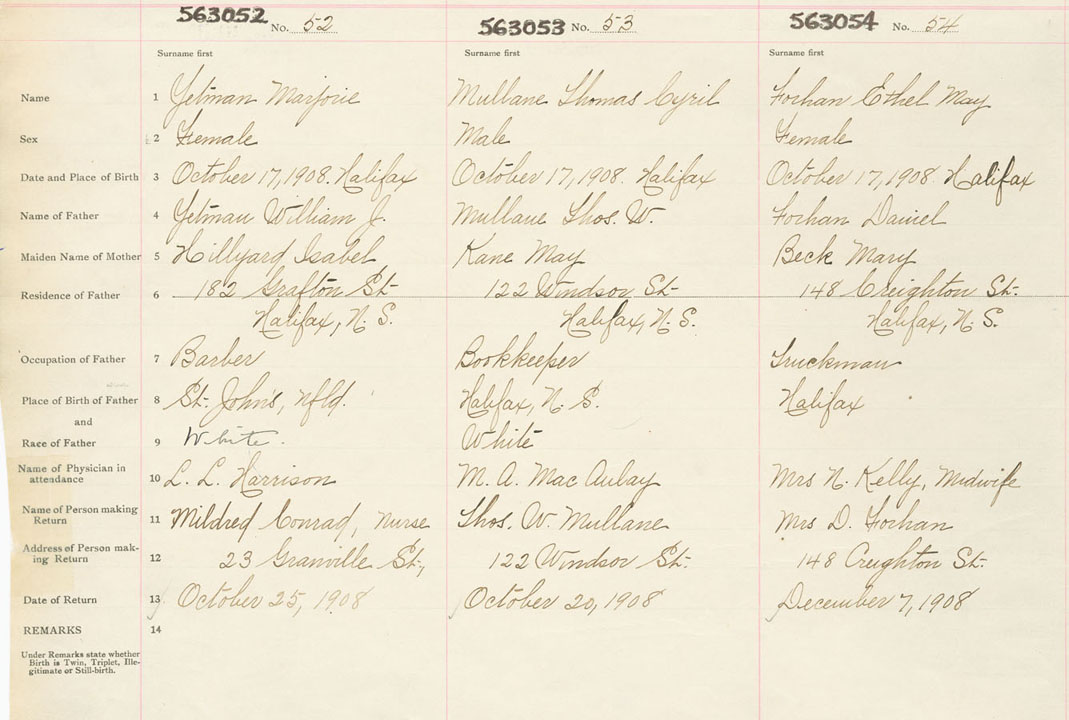 563052 No. 52 563053 No. 53 563054 No. 54
Surname first Surname first Surname first
Name 1 Yetman Marjorie Mullane Thomas Cyril Forhan Ethel May
Sex 2 Female Male Female
Date and Place of Birth 3 October 17, 1908. Halifax October 17, 1908. Halifax October 17, 1908. Halifax
Name of Father 4 Yetman William J. Mullane Thos. W. Forhan Daniel
Maiden Name of Mother 5 Hillyard Isabel Kane May Beck Mary
Residence of Father 6 182 Grafton St. 122 Windsor St. 148 Creighton St.
Halifax, N. S. Halifax, N. S. Halifax, N. S.
Occupation of Father 7 Barber Bookkeeper Truckman
Place of Birth of Father 8 St. John's, Nfld. Halifax, N. S. Halifax
and
Race of Father 9 White. White
Name of Physician in
attendance 10 L. L. Harrison M. A. Mac Aulay Mrs N. Kelly, Midwife
Name of Person making
Return 11 Mildred Conrad, Nurse Thos. W. Mullane Mrs D. Forhan
Address of Person mak-
ing Return 12 23 Granville St., 122 Windsor St. 148 Creighton St.
Date of Return 13 October 25, 1908 October 20, 1908 December 7, 1908
REMARKS 14
Under Remarks state whether
Birth is Twin, Triplet, Ille-
gitimate or Still-birth.